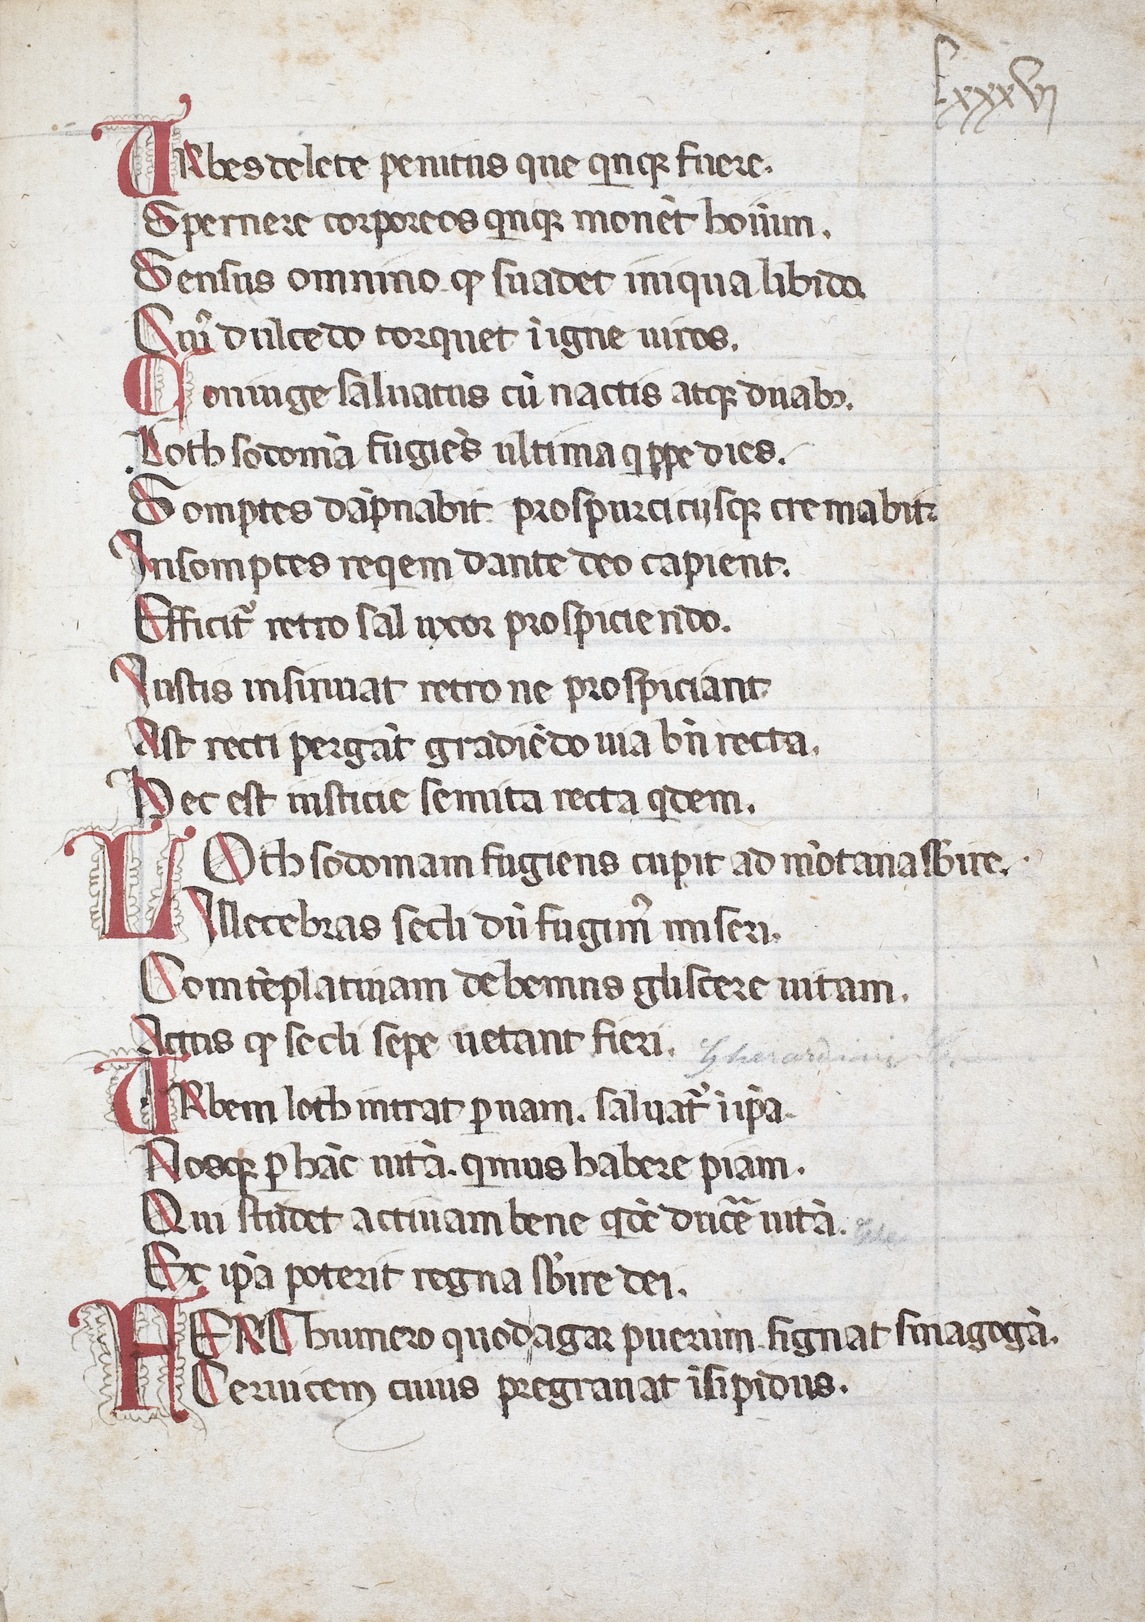 lxxxvj
URbes delete penitus que qinqꝫ fuere.
Spernere corporeos qinqꝫ monēt hoīum.
Sensus omnino qꝫ suadet iniqua libido
Cuiꝰ dulcedo torquet ī igne uiros.
Coniuge saluatus cū nactis atqꝫ duabꝫ.
Loth sodomā fugiēs ultima qippe dies.
Somptes dāpnabit prospurcicijsqꝫ cremabit
Insomptes reqem dante deo capient.
Efficit᷑ retro sal uxor prospiciendo.
Iustis insinuat retro ne prospiciant
Ast recti pergāt gradiēdo uia bn̄ recta.
Hec est iusticie semita recta qdem.
LOth sodomam fugiens cupit ad mōtana sbire.
Illecebras secli dū fugimꝰ miseri.
Comtēplatiuam debemus gliscere uitam.
Actus qꝫ secli sepe uetant fieri.
URbem loth intrat ꝑuam. saluat᷑ ī ipa.
Nosqꝫ ꝑ hāc uitā. qimus habere piam.
Qui studet actiuam bene qdē dūce᷑ uitā.
Ex ipā poterit regna sbire dei.
FERT humero quod agar puerum signat sinagogā.
Ceruicem cuius pregrauat īsipidus.